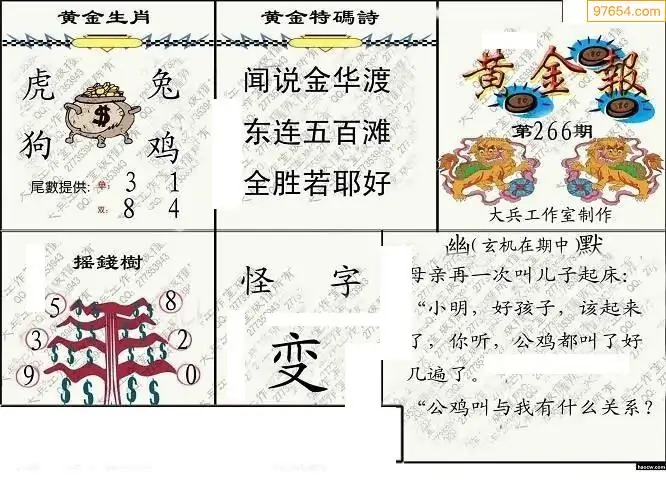 97654.com
黄金生肖
虎 兔
$
狗 鸡
尾數提供: 单: 3 1
双: 8 4
黄金特碼詩
闻说金华渡
东连五百滩
全胜若耶好
黄金報
第266期
大兵工作室制作
摇錢樹
5 8
3 2
9 0
怪 字
变
幽(玄机在期中)默
母亲再一次叫儿子起床：
“小明，好孩子，该起来
了，你听，公鸡都叫了好
几遍了。
“公鸡叫与我有什么关系？
haocw.com